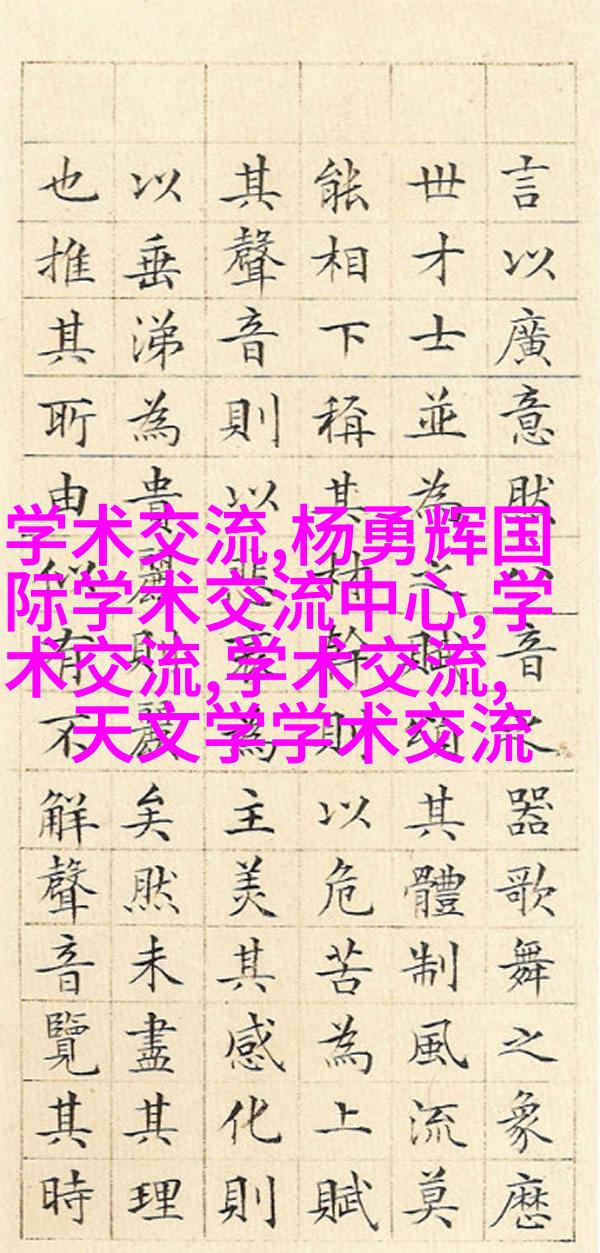 言以廣意然八音之器歌舞之象歷
世才士並為之賦頌其體制風流莫
能相下稱其材幹則以危苦為上賦
其聲音則以悲哀為主美其感化則
以垂涕為貴麗則麗矣然未盡其理
也推其所由似有不解聲音覽其時
学术交流,杨勇辉国
际学术交流中心,学
术交流,学术交流,
天文学学术交流